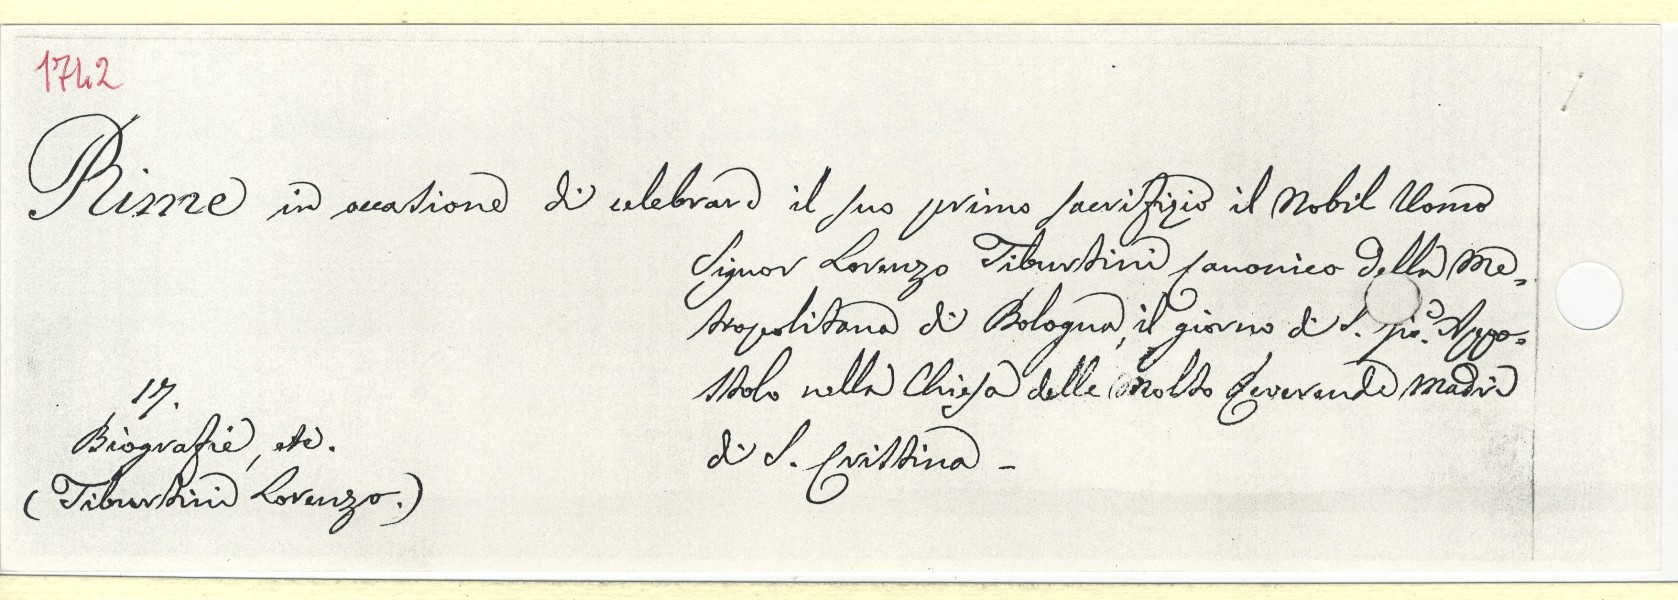 1742
Rime in occasione di celebrare il suo primo sacrifizio il Nobil Uomo
Signor Lorenzo Tiburtini Canonico della Me=
tropolitana di Bologna, il giorno di S. Appo=
stolo nella Chiesa delle Molto Reverende Madri
di S. Cristina -
17.
Biografie, etc.
(Tiburtini Lorenzo.)